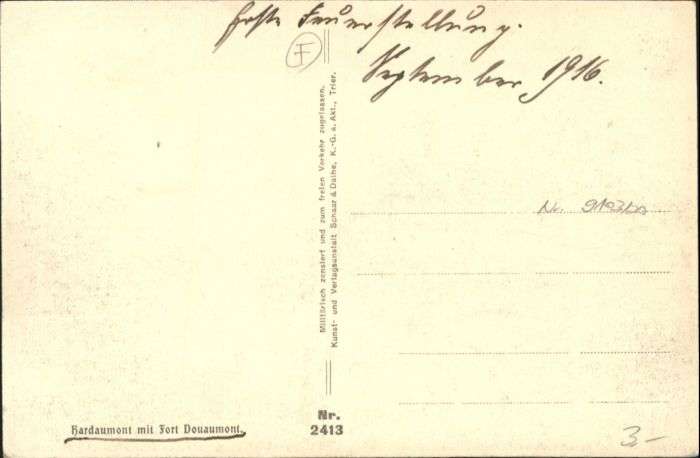 Erste Feuerstellung.
September 1916.
F
Militärisch zensiert und zum freien Verkehr zugelassen.
Kunst- und Verlagsanstalt Schaar & Dathe, K.-G. a. Akt., Trier.
Nr.
Hardaumont mit Fort Douaumont.
Nr.
2413
3,-